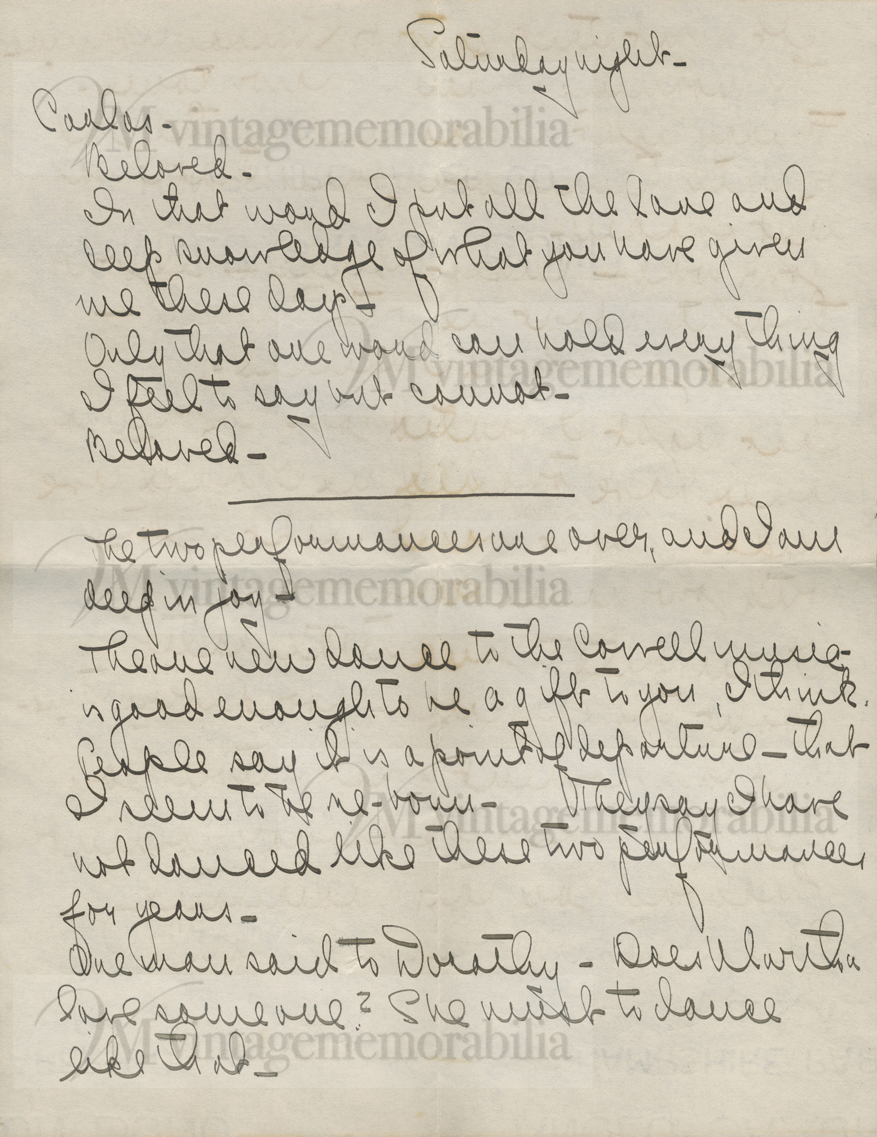 Saturday night -
Carlos -
Beloved -
In that word I put all the love and
deep knowledge of what you have given
me these days -
Only that one word can hold everything
I feel to say but cannot -
Beloved -
The two performances are over, and I am
deep in joy -
The one new dance to the Cowell music -
is good enough to be a gift to you, I think.
People say it is a point of departure - that
I seem to be re-born - They say I have
not danced like these two performances
for years -
One man said to Dorothy - Does Martha
love someone? She must to dance
like that -
vintagememorabilia
vintagememorabilia
vintagememorabilia
vintagememorabilia
vintagememorabilia